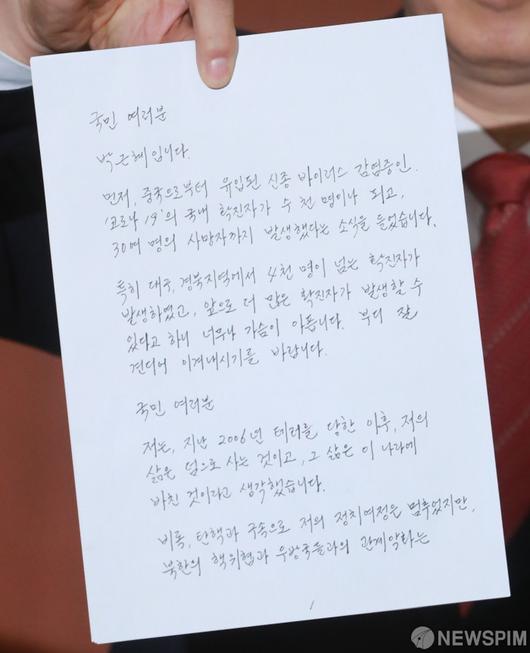 국민 여러분
박근혜입니다.
먼저, 중국으로부터 유입된 신종 바이러스 감염증인.
'코로나 19'의 국내 확진자가 수 천 명이나 되고,
30여 명의 사망자까지 발생했다는 소식을 들었습니다.
특히 대구, 경북지역에서 4천 명이 넘는 확진자가
발생하였고, 앞으로 더 많은 확진자가 발생할 수
있다고 하니 너무나 가슴이 아픕니다. 부디 잘
견디어 이겨내시기를 바랍니다.
국민 여러분
저는, 지난 2006년 테러를 당한 이후, 저의
삶은 덤으로 사는 것이고, 그 삶은 이 나라에
바친 것이라고 생각했습니다.
비록, 탄핵과 구속으로 저의 정치여정은 멈추었지만,
북한의 핵위협과 우방국들과의 관계악화는
1
NEWSPIM